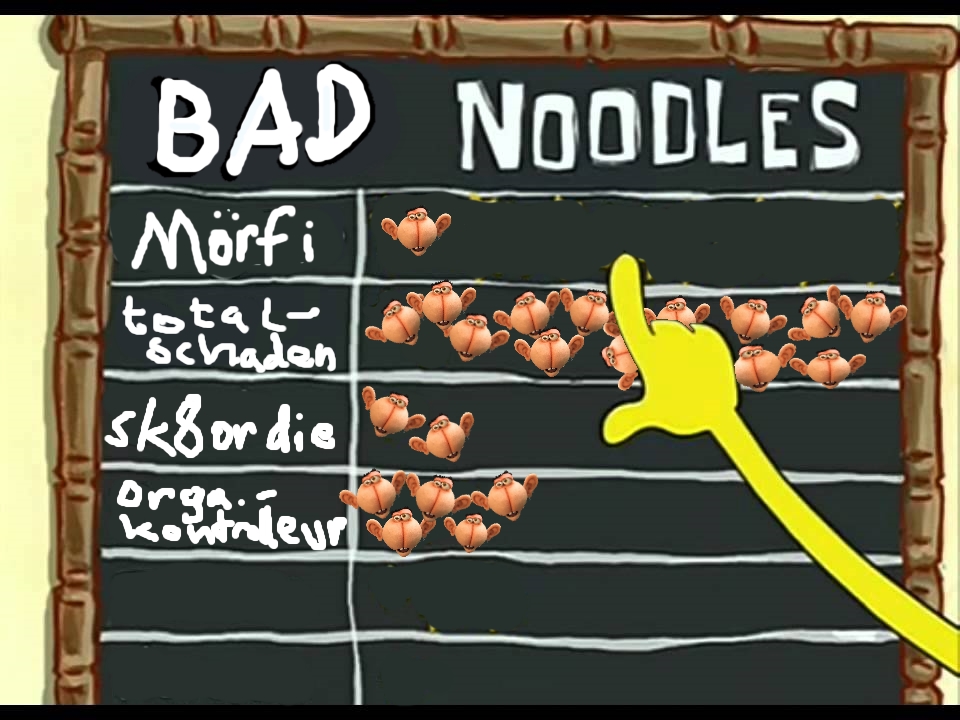 BAD NOODLES
Mörfi
total-
schaden
sk8ordie
orga.-
kontrolleur